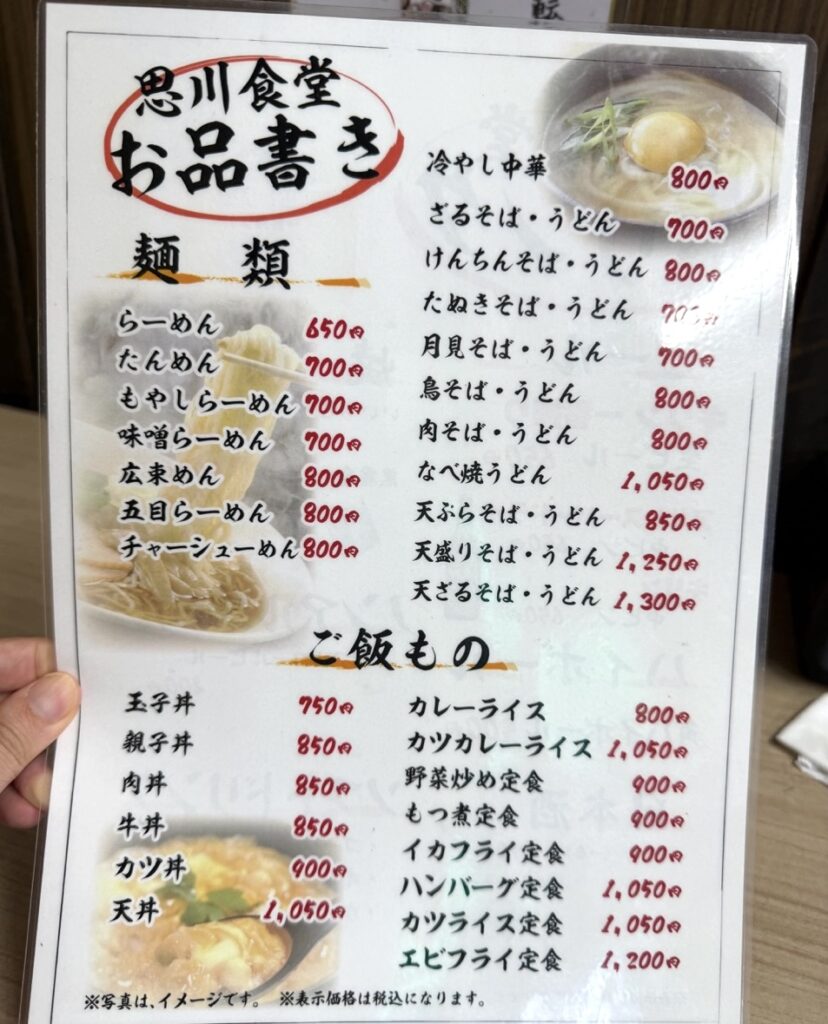 思川食堂
お品書き
麺類
らーめん 650円
たんめん 700円
もやしらーめん 700円
味噌らーめん 700円
広東めん 800円
五目らーめん 800円
チャーシューめん 800円
冷やし中華 800円
ざるそば・うどん 700円
けんちんそば・うどん 800円
たぬきそば・うどん 700円
月見そば・うどん 700円
鳥そば・うどん 800円
肉そば・うどん 800円
なべ焼うどん 1,050円
天ぷらそば・うどん 850円
天盛りそば・うどん 1,250円
天ざるそば・うどん 1,300円
ご飯もの
玉子丼 750円
親子丼 850円
肉丼 850円
牛丼 850円
カツ丼 900円
天丼 1,050円
カレーライス 800円
カツカレーライス 1,050円
野菜炒め定食 900円
もつ煮定食 900円
イカフライ定食 900円
ハンバーグ定食 1,050円
カツライス定食 1,050円
エビフライ定食 1,200円
※写真は、イメージです。 ※表示価格は税込になります。